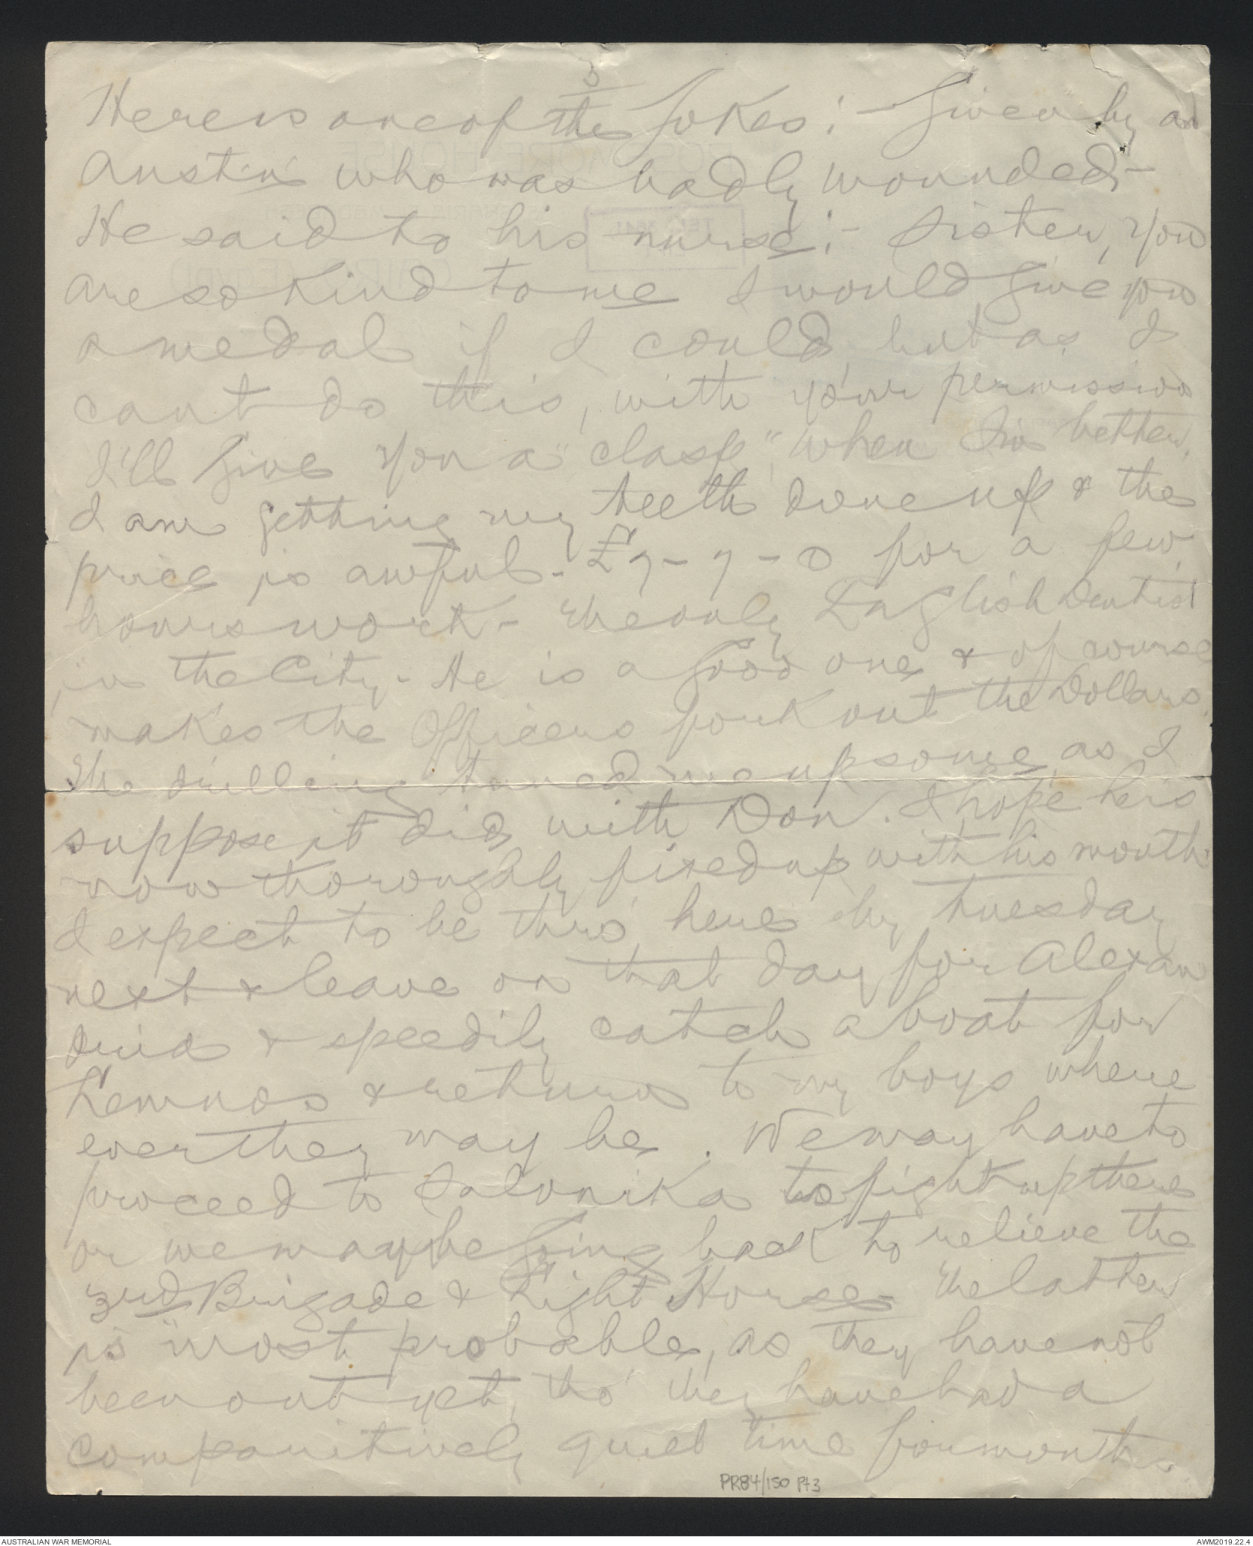 5
Here is one of the Jokes :- Given by an
Austn who was badly wounded,-
He said to his nurse :- Sister, you
are so kind to me I would give you
a medal if I could, but as I
can't do this, with your permission
I'll give you a "clasp", when I'm better,
I am getting my teeth done up & the
price is awful - £7-7-0 for a few
hours work - The only English Dentist
in the City - He is a good one & of course
makes the Officers fork out the Dollars.
The drilling me up some as I
suppose it did with Don. I hope he's
now thoroughly fixed up with his mouth
I expect to be thro' here by Tuesday
next & leave on that day for Alexan
dria & speedily catch a boat for
Lemnos & return to my boys where
ever they may be. We may have to
proceed to Salonika to fight up there
or we may be going back to relieve the
3rd Brigade & Light Horse - The latter
is most probable, as they have not
been out yet, tho' they have had a
comparitively quiet time for months.
PR84/150 Pt3
AUSTRALIAN WAR MEMORIAL
AWM2019.22.4